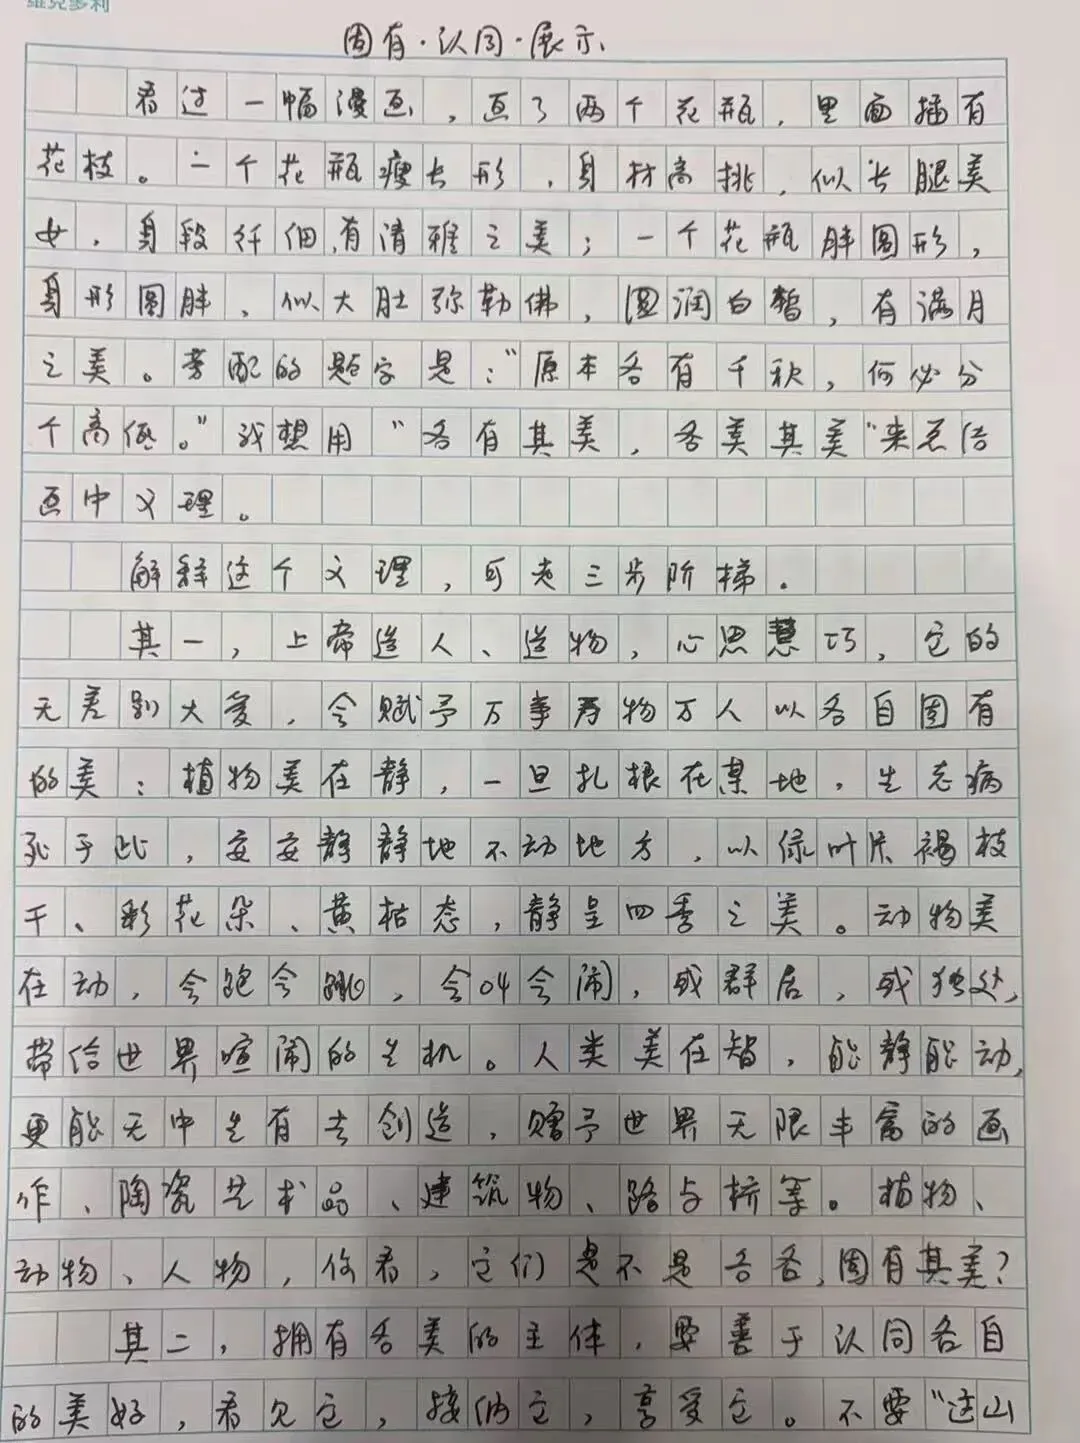 维克多利
固有·认同·展示
看过一幅漫画，画了两个花瓶，里面插有
花枝。一个花瓶瘦长形，身材高挑，似长腿美
女，身段纤细，有清雅之美；一个花瓶胖圆形，
身形圆胖，似大肚弥勒佛，圆润白皙，有满月
之美。旁配的题字是："原本各有千秋，何必分
个高低。"我想用"各有其美，各美其美"来总结
画中文理。
解释这个文理，可走三步阶梯．
其一，上帝造人、造物，心思慧巧，它的
无差别大爱，会赋予万事万物万人以各自固有
的美：植物美在静，一旦扎根在某地，生老病
死于此，安安静静地不动地方，以绿叶片褐枝
干、彩花朵、黄枯态，静呈四季之美。动物美
在动，会跑会跳，会叫会闹，或群居，或独处，
带给世界喧闹的生机。人类美在智，能静能动，
更能无中生有去创造，赠予世界无限丰富的画
作、陶瓷艺术品、建筑物、路与桥等。植物、
动物、人物，你看，它们是不是各各，固有其美？
其二，拥有各美的主体，要善于认同各自
的美好，看见它，接纳它，享受它。不要"这山